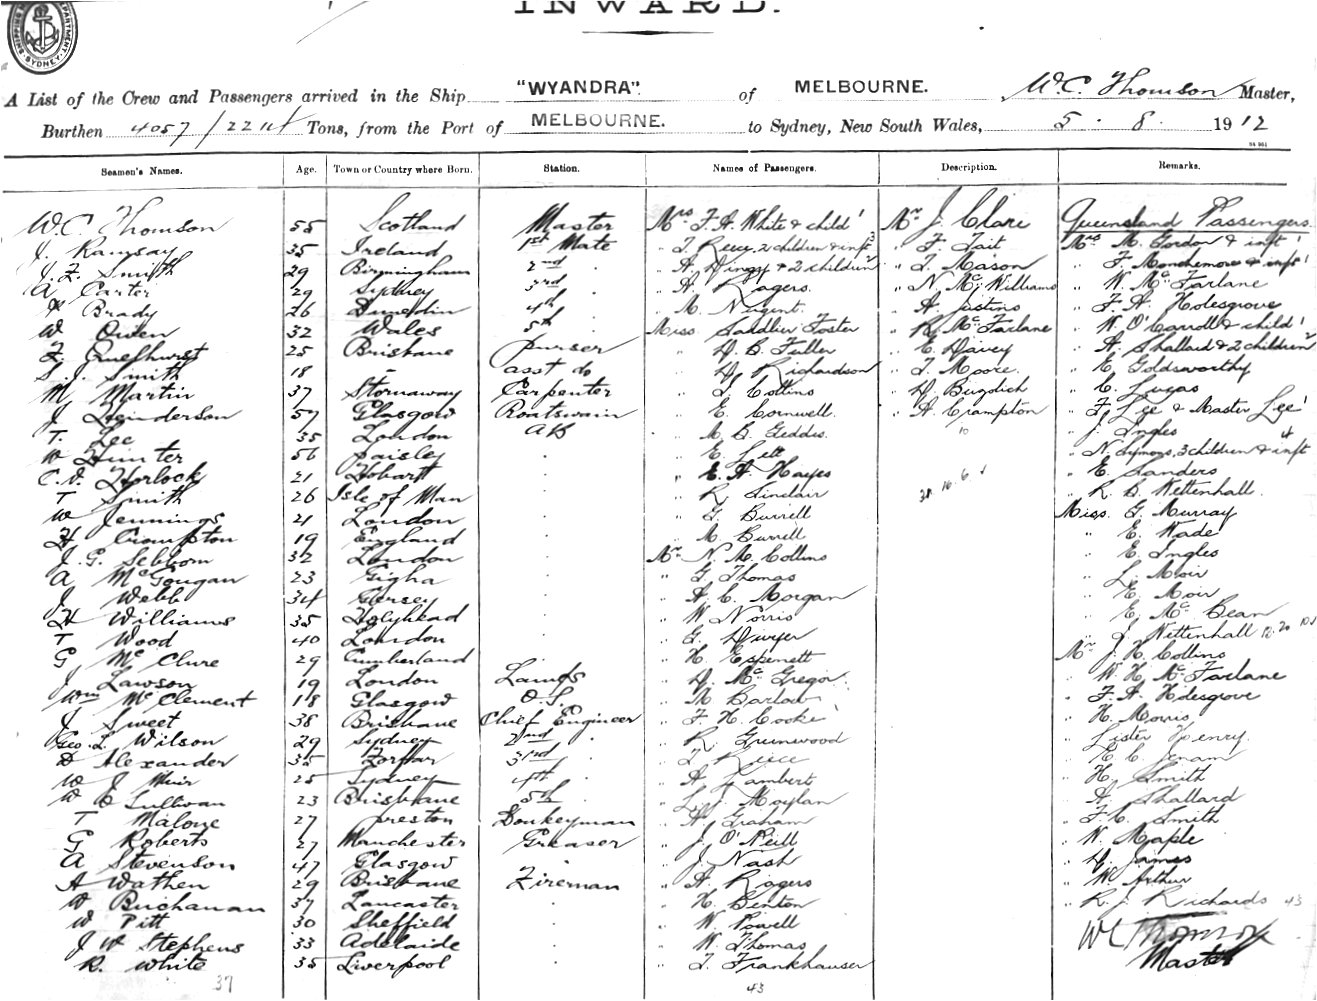 INWARD.
SHIPPING DEPARTMENT SYDNEY
A List of the Crew and Passengers arrived in the Ship "WYANDRA". of MELBOURNE. W.C. Thomson Master,
Burthen 4057/2214 Tons, from the Port of MELBOURNE. to Sydney, New South Wales, 5 . 8. 1912
Seamen's Names. Age. Town or Country where Born. Station. Names of Passengers. Description. Remarks.
W.C. Thomson 55 Scotland Master Mrs F.A. White & child 1 Mr J. Clare Queensland Passengers
J. Ramsay 35 Ireland 1st Mate " 2 children & inft 3 " F. Tait Mrs M. Gordon & inft 1
J. F. Smith 29 Birmingham 2nd " " & 2 children " J. Mason " F. & inft 1
A Carter 29 Sydney 3rd " " A. Rogers. " N. McWilliams " W. McFarlane
Brady 26 Dunedin 4th " " M. Nugent. " A. Justins " F. A. Holesgrove
W Owen 32 Wales 5th " Miss Sandlier Foster " R. McFarlane " W. O'Carroll & child 1
25 Brisbane Purser " D. B. Fuller " E. Davey " A. Shallard & 2 children
S. J. Smith 18 " asst do " Richardson " J. Moore. " E. Goldsworthy
M Martin 37 Stornaway Carpenter " L. Collins " D. Bugdich " C. Lucas
J. Henderson 57 Glasgow Boatswain " E. Cornwell. " A. Crampton " F. Lee & Master Lee 1
T. Lee 35 London AB " M. B. Geddis. 10 " J. Ingles 4
W Hunter 56 Paisley " " E. " N. Symons, 3 children & inft
C.V. Horlock 21 Hobart " " E. A. Hayes " E. Sanders
T Smith 26 Isle of Man " " R. Sinclair 38. 16. 6. " R. B. Wettenhall.
W Jennings 21 London " " G. Burrell Miss. G. Murray
H Crompton 19 England " " M. Burrell " E. Wade
J. G. Sebborn 32 London " Mr N. M. Collins " E. Ingles
A McGougan 23 Gigha " " G. Thomas " L. Moir
J. Webb 34 Gersey " " A. C. Morgan " E. Moir
H Williams 35 Holyhead " " W. Norris " E. McBean
T Wood 40 London " " G. Dwyer " J. Wettenhall 12. 20
G McClure 29 Cumberland " " H. Espenett Mr J. H. Collins
J. Lawson 19 London Lamps " D. McGregor. " W. H. McFarlane
Wm McClement 18 Glasgow O.S. " M Barlow " F. A. Holesgrove
J. Sweet 38 Brisbane Chief Engineer " F. H. Cooke " H. Morris
Geo. L. Wilson 29 Sydney 2nd " " R. Greenwood " Lister Henry.
D Alexander 35 Forfar 3rd " J. Reece " E. C. Jenam
W J Muir 25 Sydney 4th " " A. Lambert " H. Smith
W C Sullivan 23 Brisbane 5th " " L. J. Moylan " A. Shallard
T Malone 27 Preston Donkeyman " A. Graham " F. C. Smith
G Roberts 27 Manchester Greaser " J. O'Neill " W. Maple
A Stevenson 47 Glasgow " " J. Nash " D. James
A Wathen 29 Brisbane Fireman " A. Rogers " W. Arthur
W Buchanan 37 Lancaster " " H. Benton " R. J. Richards 43
W Pitt 30 Sheffield " " W. Powell
J W Stephens 33 Adelaide " " W. Thomas WC Thomson
R. White 35 Liverpool " " J. Frankhauser Master
37 43